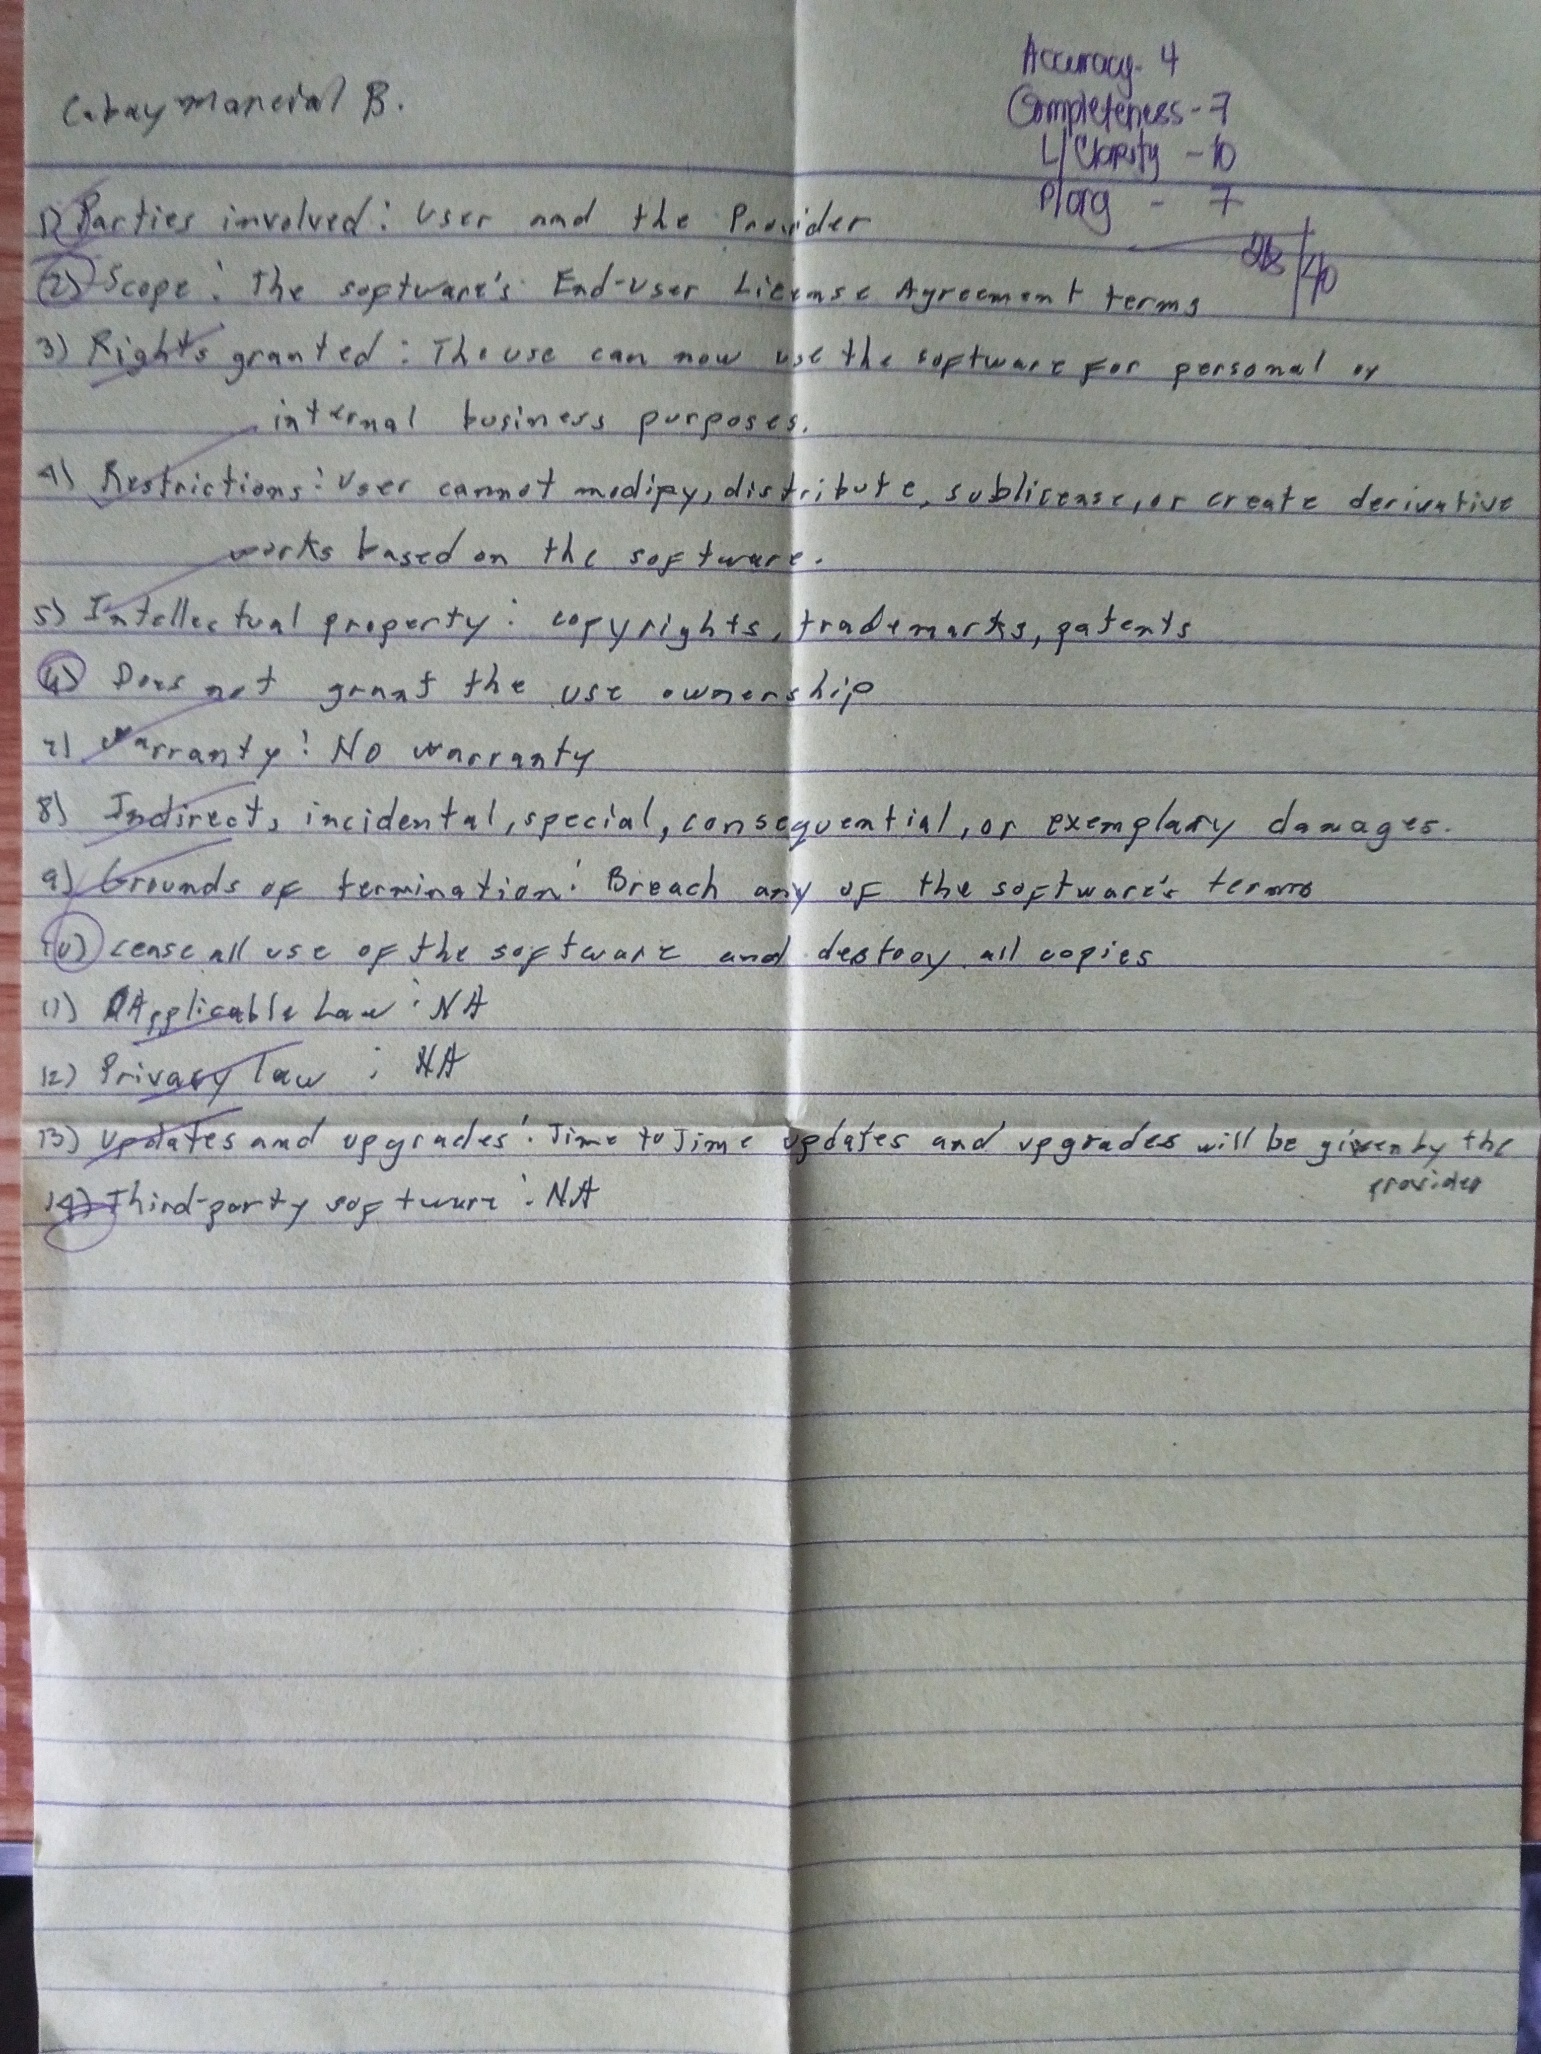 Cabay Marcial B.
Accuracy - 4
Completeness - 7
L/Clarity - 10
P/org - 7
28/40
1) Parties involved: User and the Provider
2) Scope: The software's End-user License Agreement terms
3) Rights granted: The use can now use the software for personal or
internal business purposes.
4) Restrictions: User cannot modify, distribute, sublicense, or create derivative
works based on the software.
5) Intellectual property: copyrights, trademarks, patents
6) Does not grant the use ownership
7) Warranty: No warranty
8) Indirect, incidental, special, consequential, or exemplary damages.
9) Grounds of termination: Breach any of the software's terms
10) cease all use of the software and destroy all copies
11) Applicable Law: NA
12) Privacy law : NA
13) updates and upgrades: Time to Time updates and upgrades will be given by the
provider
14) Third-party software: NA